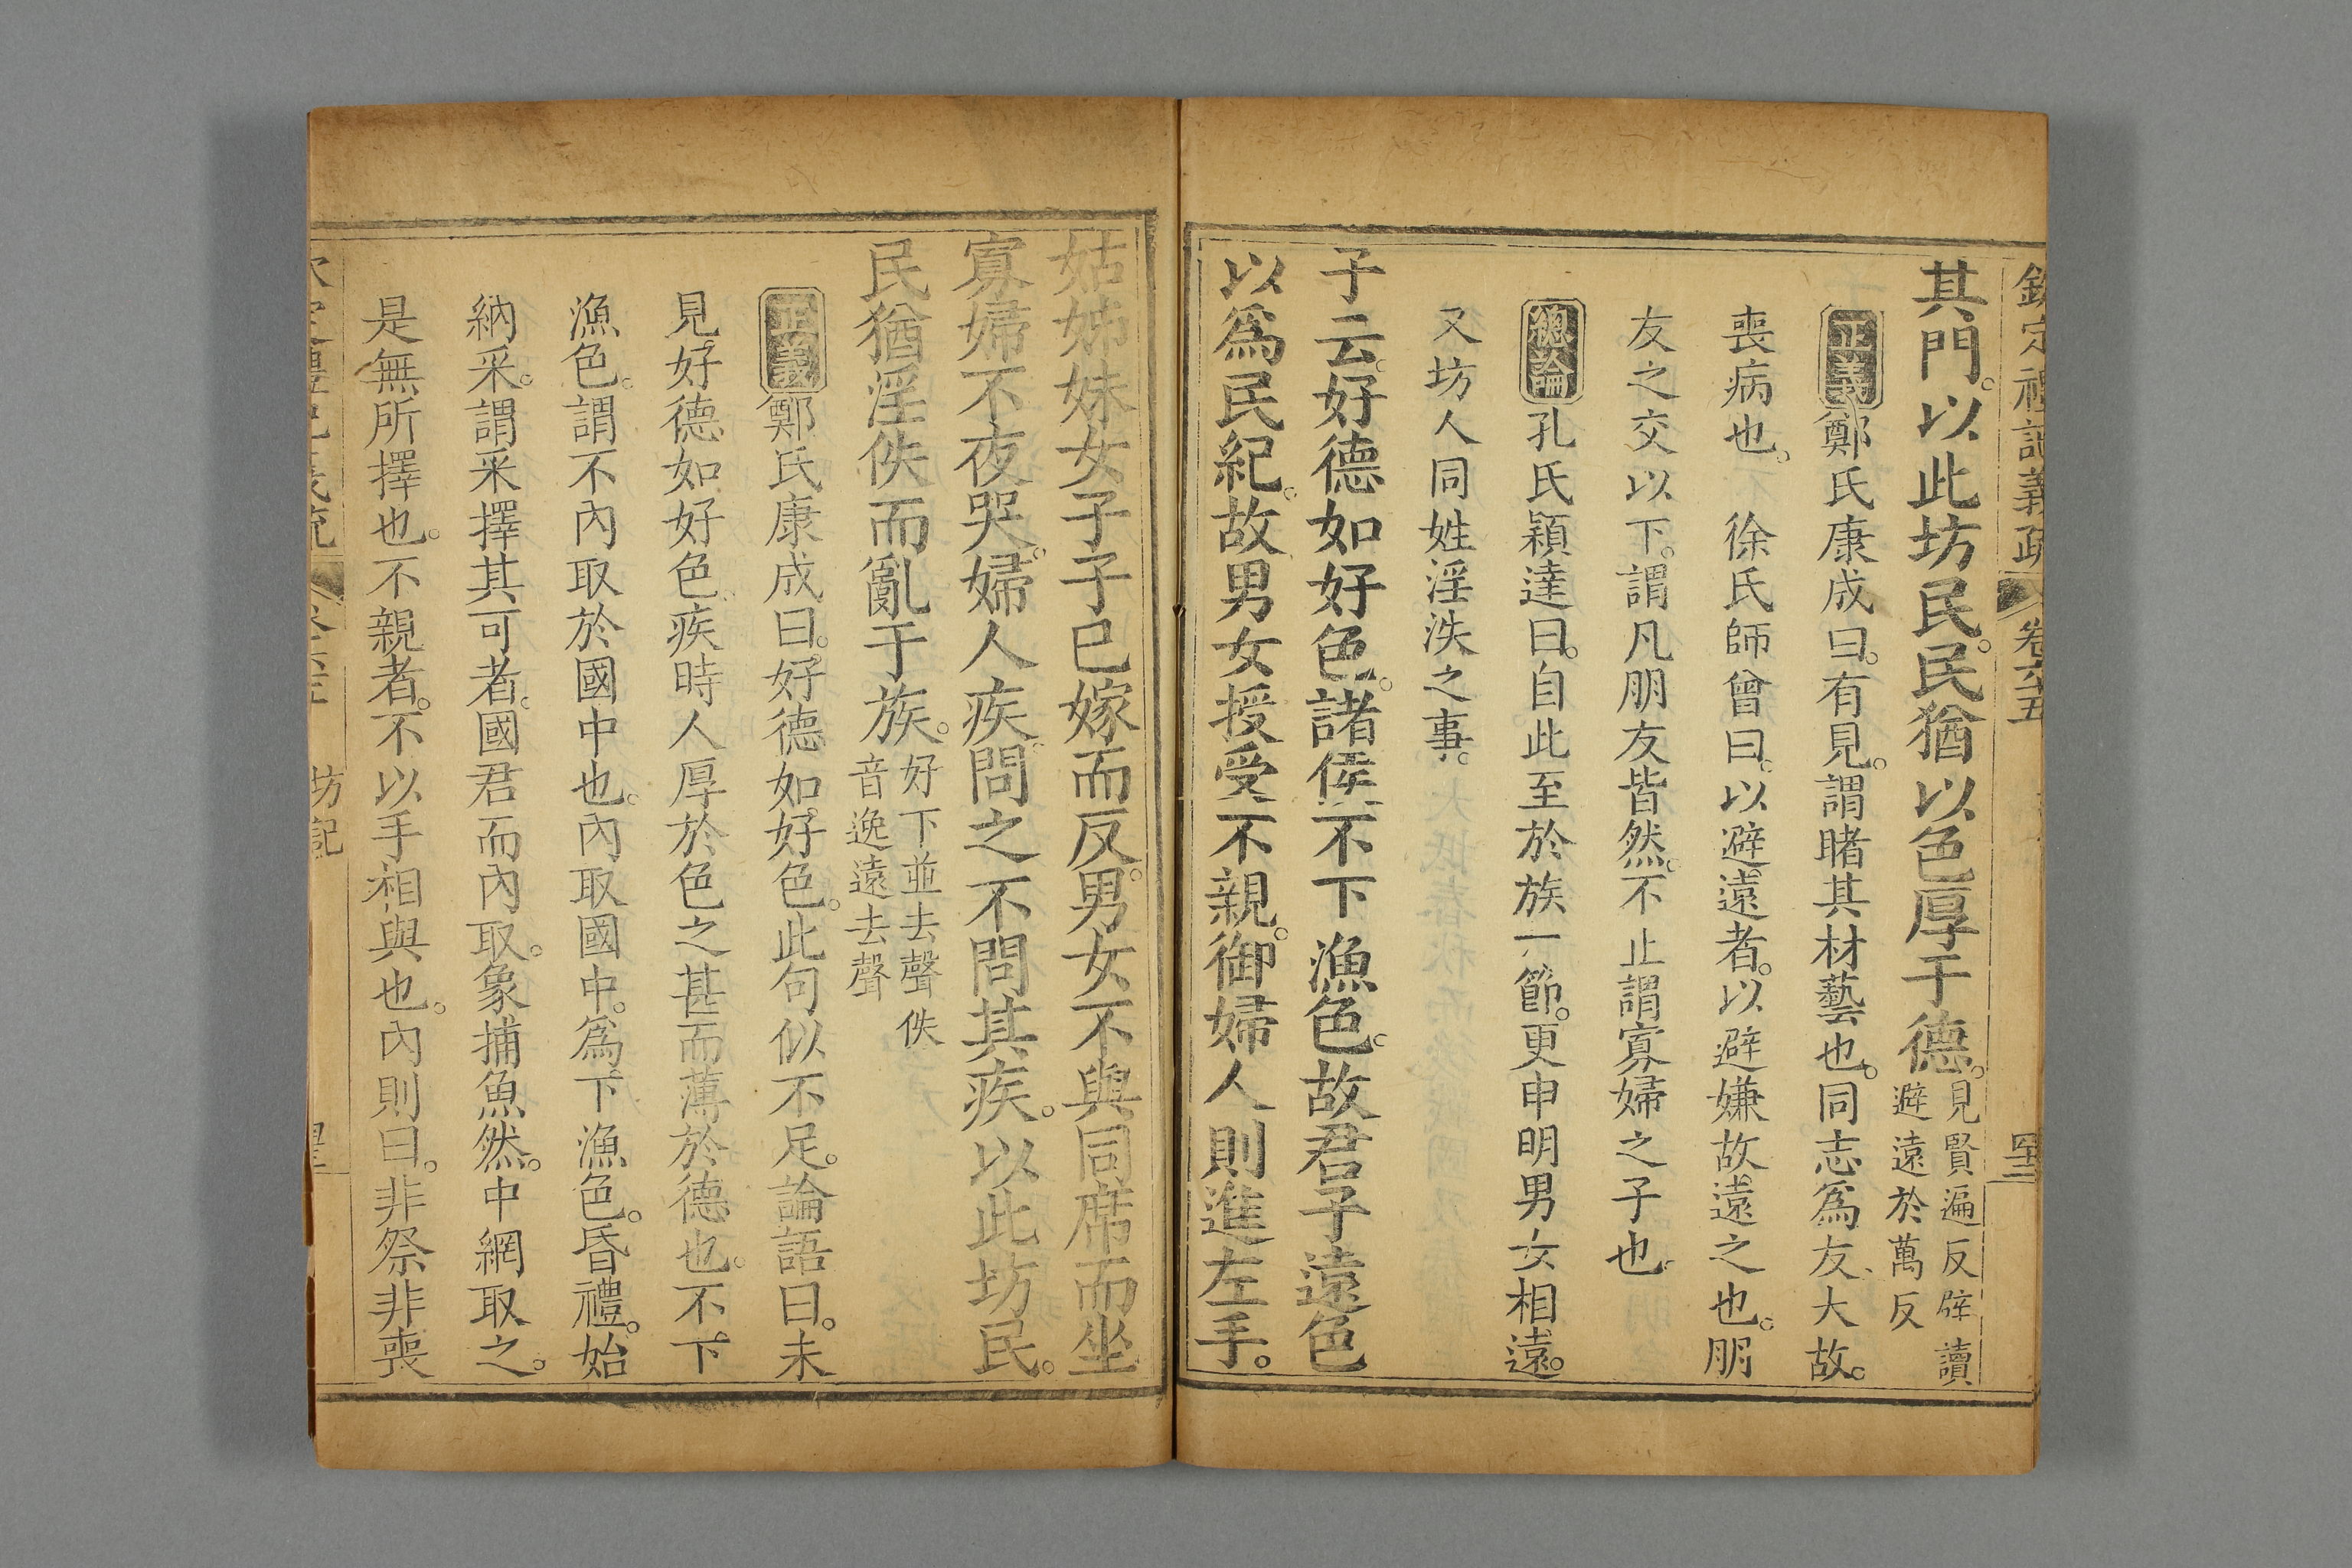 欽定禮記義疏 卷六十五 四十二
其門。以此坊民。民猶以色厚于德。見賢遍反辟讀
避遠於萬反
正義鄭氏康成曰。有見。謂睹其材藝也。同志爲友、大故。
喪病也。 徐氏師曾曰。以避遠者。以避嫌故遠之也。朋
友之交以下。謂凡朋友皆然。不止謂寡婦之子也。
總論孔氏穎達曰。自此至於族一節。更申明男女相遠。
又坊人同姓淫泆之事。
子云。好德如好色。諸侯不下漁色。故君子遠色
以爲民紀。故男女授受不親。御婦人則進左手。
姑姊妹女子子已嫁而反。男女不與同席而坐
寡婦不夜哭。婦人疾、問之不問其疾。以此坊民。
民猶淫佚而亂于族。好下並去聲佚
音逸遠去聲
正義鄭氏康成曰。好德如好色。此句似不足。論語曰。未
見好德如好色、疾時人厚於色之甚而薄於德也。不下
漁色。謂不內取於國中也。內取國中。爲下漁色。昏禮。始
納采。謂采擇其可者。國君而內取。象捕魚然。中網取之。
是無所擇也。不親者。不以手相與也。內則曰。非祭非喪
坊記